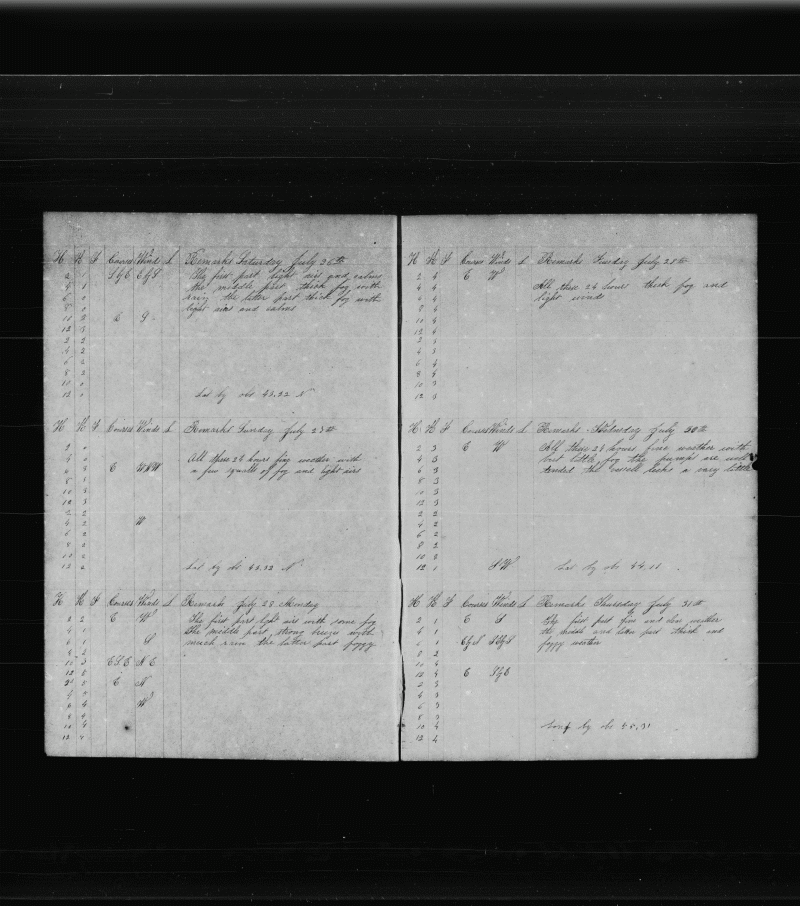 H K F Courses Winds L Remarks Saturday July 26th
2 1 S by E E by S The first part light airs and calms
4 1 the middle part thick fog with
6 0 rain the latter part thick fog with
8 0 light airs and calms
10 2 E
12 3
2 2
4 2
6 2
8 2
10 0
12 1 Lat by obs 43.22 N
H K F Courses Winds L Remarks Sunday July 27th
2 0
4 0 All these 24 hours fine weather with
6 3 E WNW a few squalls of fog and light airs
8 3
10 3
12 3
2 2
4 2 W
6 2
8 2
10 2
12 2 Lat by obs 43.32 N
H K F Courses Winds L Remark July 28 Monday
2 2 E W The first part light airs with some fog
4 1 The middle part strong breeze with
1 S much rain the latter part foggy
8 2
10 3 ESE NE
12 8
2 8 E N
4
6 4 W
8 4
10 4
12 4
H K F Courses Winds L Remark Tuesday July 29th
2 4 E W
4 4 All these 24 hours thick fog and
6 4 light winds
8 4
10 4
12 4
2 3
4 3
6 4
8 4
10 3
12 3
H K F Courses Winds L Remarks Wednesday July 30th
2 3 E W All these 24 hours fine weather with
4 3 but little fog the pumps are well
6 3 tended the vessel leaks a very little
8 3
10 3
12 3
2 2
4 2
6 2
8 2
10 2
12 1 SW Lat by obs 44.11
H K F Courses Winds L Remarks Thursday July 31th
2 1 E S The first part fine and clear weather
4 1 the middle and latter part thick and
6 1 E by S S by S foggy weather
8 2
10 4
12 4 E S by E
2 3
4 3
6 3
8 3
10 4 Long by obs 48.31
12 4